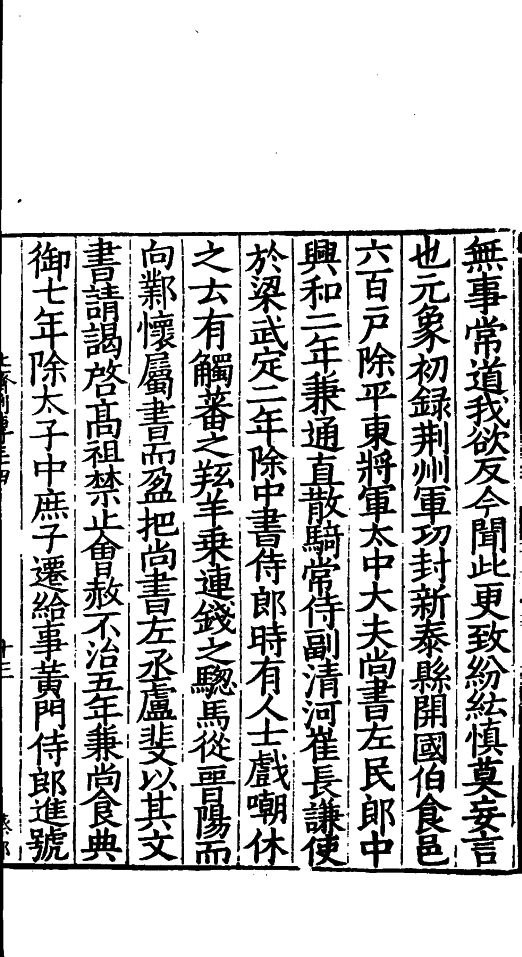 無事常道我欲反今聞此更致紛紜慎莫妄言
也元象初録荆州軍功封新泰縣開國伯食邑
六百戸除平東將軍太中大夫尚書左民郎中
興和二年兼通直散騎常侍副清河崔長謙使
於梁武定二年除中書侍郎時有人士戲嘲休
之云有觸藩之羝羊乗連錢之驄馬從晉陽而
向鄴懷屬書而盈把尚書左丞盧斐以其文
書請謁啓髙祖禁止㑹赦不治五年兼尚食典
御七年除太子中庶子遷給事黄門侍郎進號